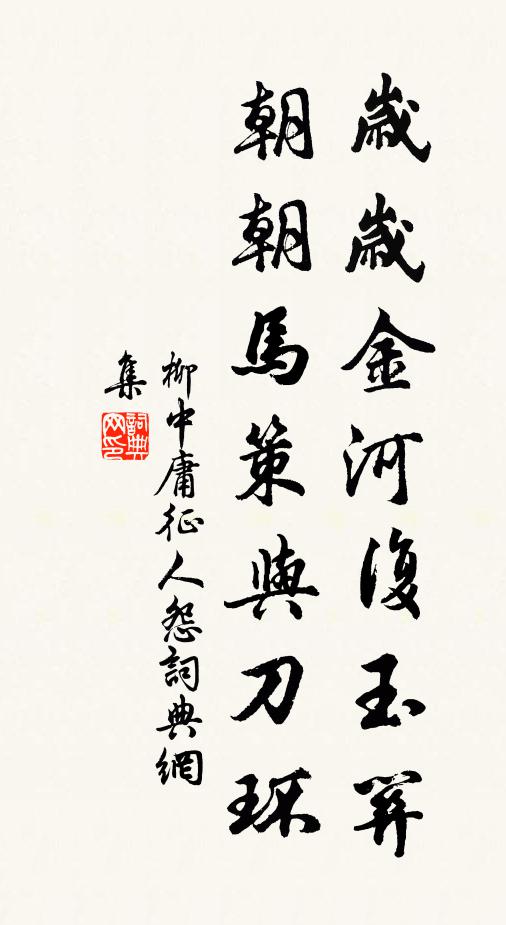 歲歲金河復玉關
朝朝馬策與刀環
柳中庸征人怨詞典網
集
詞典網印